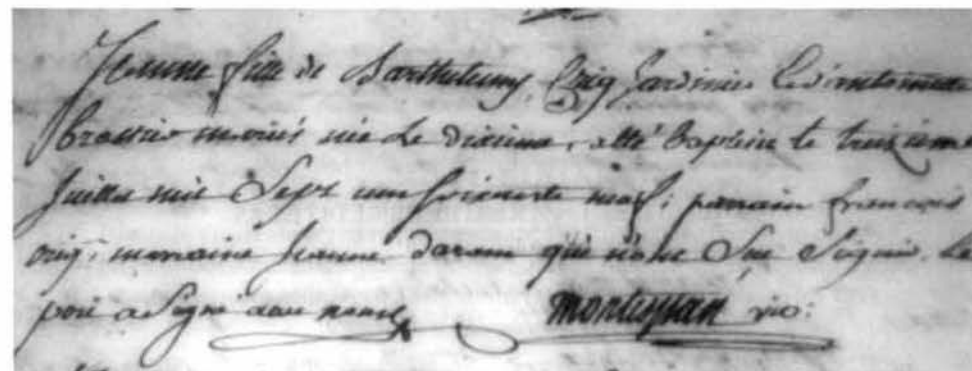 Jeanne fille de Barthelemy Orig Jardinier et d'antoinette
brassié mariés née le dixieme, a eté baptisée le treizieme
Juillet mil Sept cens soixante neuf; parrain francois
orig; marraine Jeanne daram qui n'ont Sçu Signer. Le
pere a Signé avec nous
montespan vic: